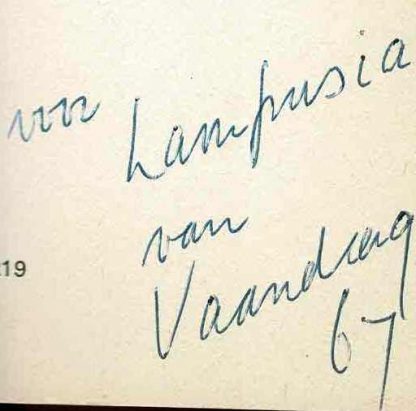 voor Lampusia
van
Vaandrag
67
:19